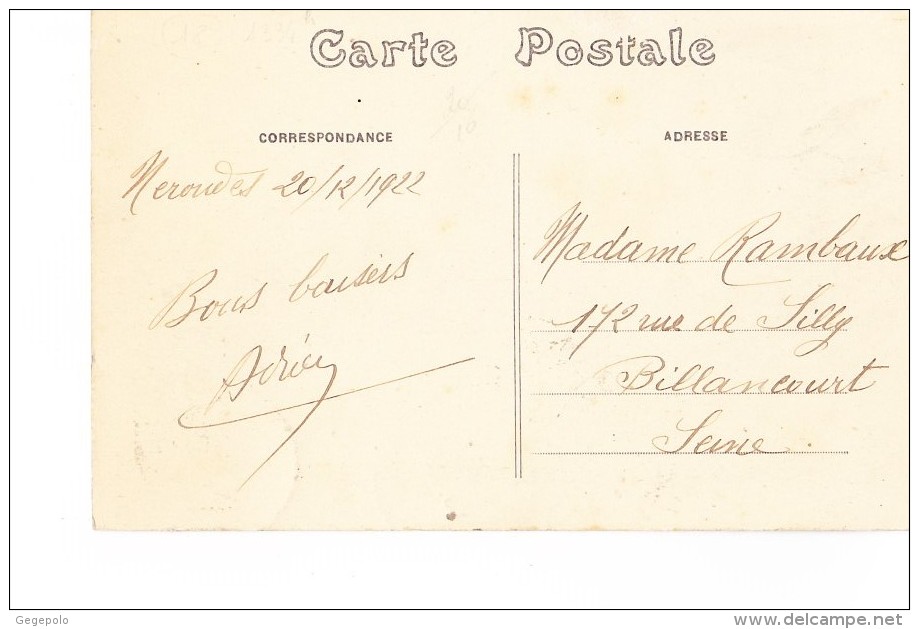 Carte Postale
CORRESPONDANCE
Nerondes 20/12/1922
Bons baisers
ADRESSE
Madame Rambaux
172 rue de Silly
Billancourt
Seine
Gegepolo
www.delcampe.net